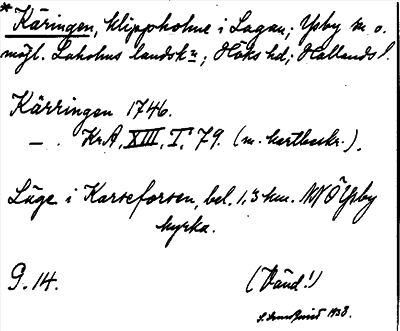 * Käringen, klippholme i Lagan; Ysby sn. o.
möjl. Laholms landskn; Höks hd; Hallands l.
Kärringen 1746.
— . KrA, XIII, I, 79. (m. kartbeskr.).
Läge i Karseforsen, bel. 1,3 km. NNÖ Ysby
kyrka.
9.14. (Vänd!)
1938.